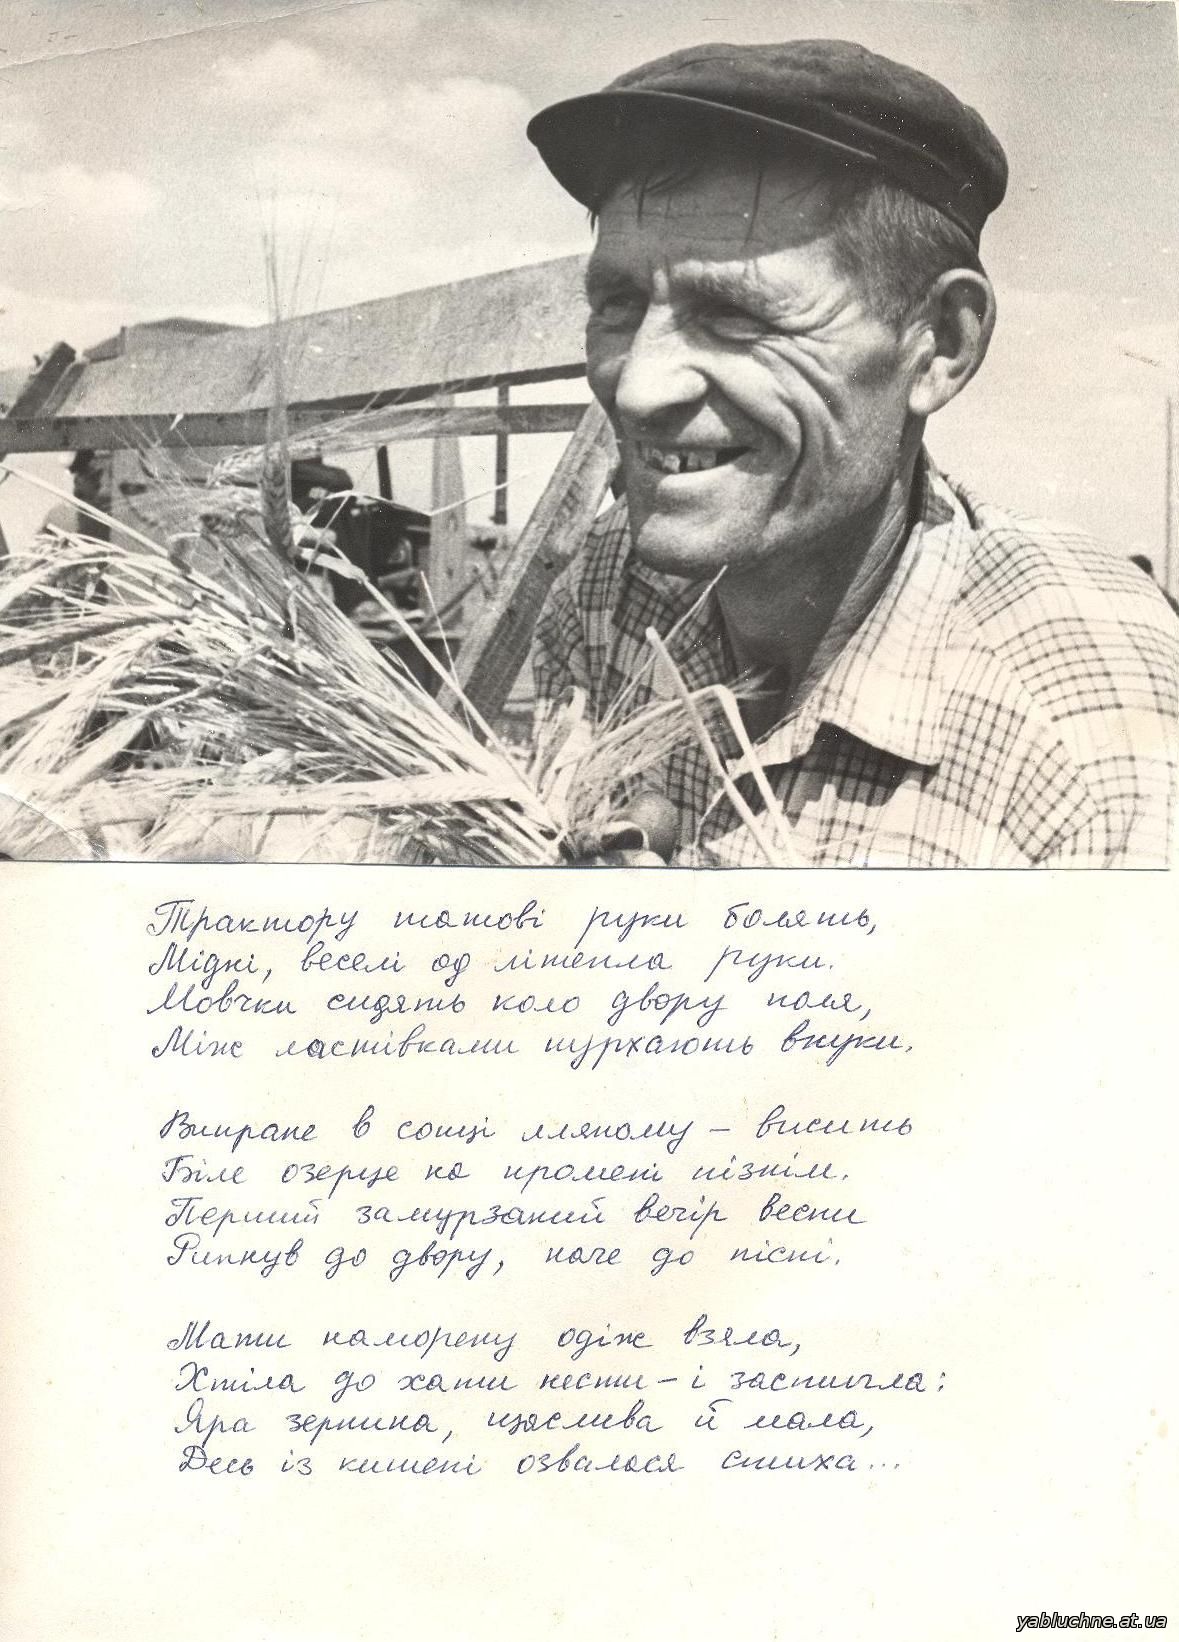 Трактору татові руки болять,
Мідні, веселі од літепла руки.
Мовчки сидять коло двору поля,
Між ластівками пурхають внуки.
Випране в сонці лляному – висить
Біле озерце на промені пізнім.
Перший замурзаний вечір весни
Рипнув до двору, наче до пісні.
Мати наморену одіж взяла,
Хтіла до хати нести – і застигла:
Яра зернина, щаслива й мала,
Десь із кишені озвалася стиха...
yabluchne.at.ua